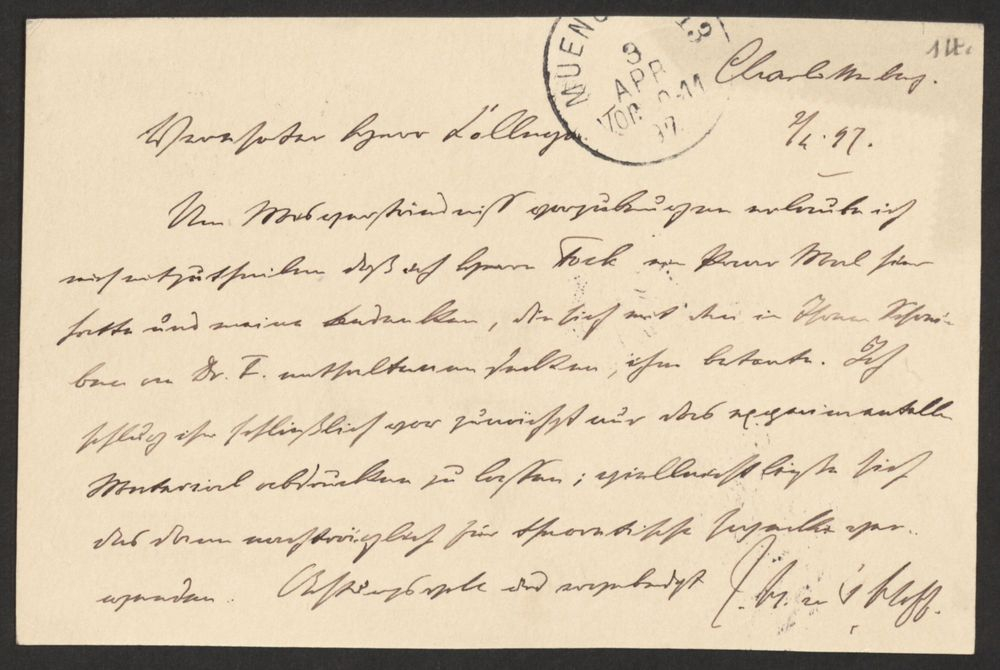 14.
MUENC 13
3
APR
VOR. -11
97
Charlottenburg.
2/4.97.
Verehrter Herr College
Um Missverständniss vorzubeugen erlaube ich
mir mitzutheilen daß ich Herrn Fock ein Paar Mal hier
hatte und meine Bedenken, die sich mit den in Ihrem Schrei-
ben an Dr. F. enthaltenen decken, ihm betonte. Ich
schlug ihm schließlich vor zunächst nur das experimentelle
Material abdrucken zu lassen; vielleicht ließe sich
das dann nachträglich für theoretische Zwecke ver-
wenden. Achtungsvoll und ergebenst J. H. van 't Hoff.